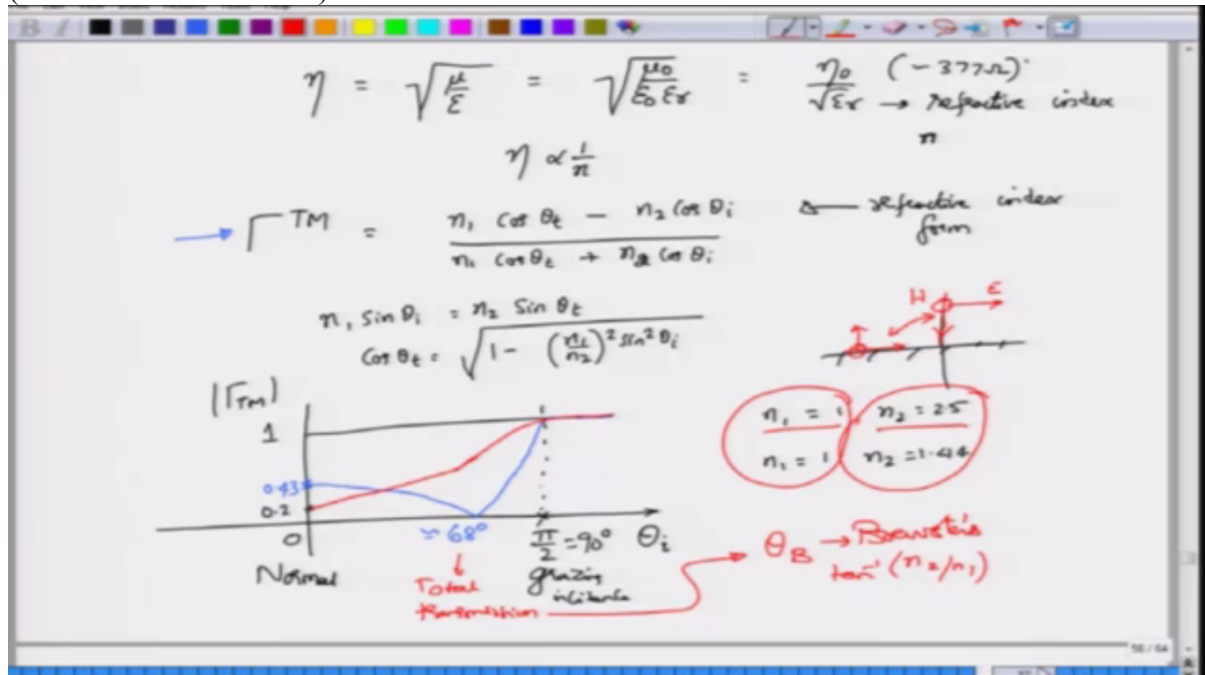 η = √(μ/ε) = √(μ0/(ε0 εr)) = η0/√εr (~377Ω)
→ refractive index
n
η ∝ 1/n
→ Γ^TM = (n1 cos θt − n2 cos θi)/(n1 cos θt + n2 cos θi) ← refractive index form
n1 sin θi = n2 sin θt
cos θt = √(1 − (n1/n2)^2 sin^2 θi)
H E
|ΓTM|
1
0.43
0.2
0
≈ 68°
π/2 = 90° θi
Normal
Total transmission
grazing
n1 = 1 n2 = 2.5
n1 = 1 n2 = 1.44
θB → Brewster's
tan⁻¹(n2/n1)
56 / 64